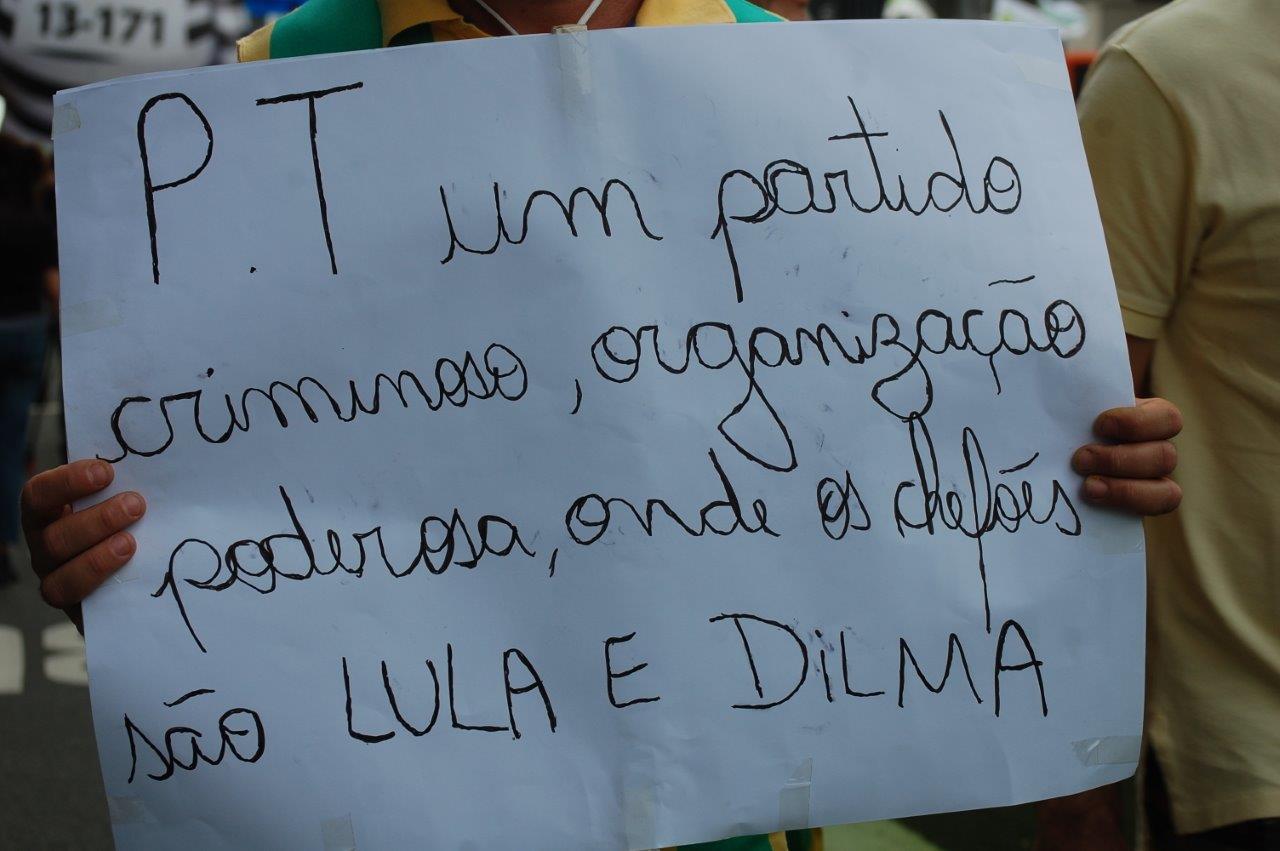 13-171
P.T um partido
criminoso, organização
poderosa, onde os chefões
são LULA E DiLMA